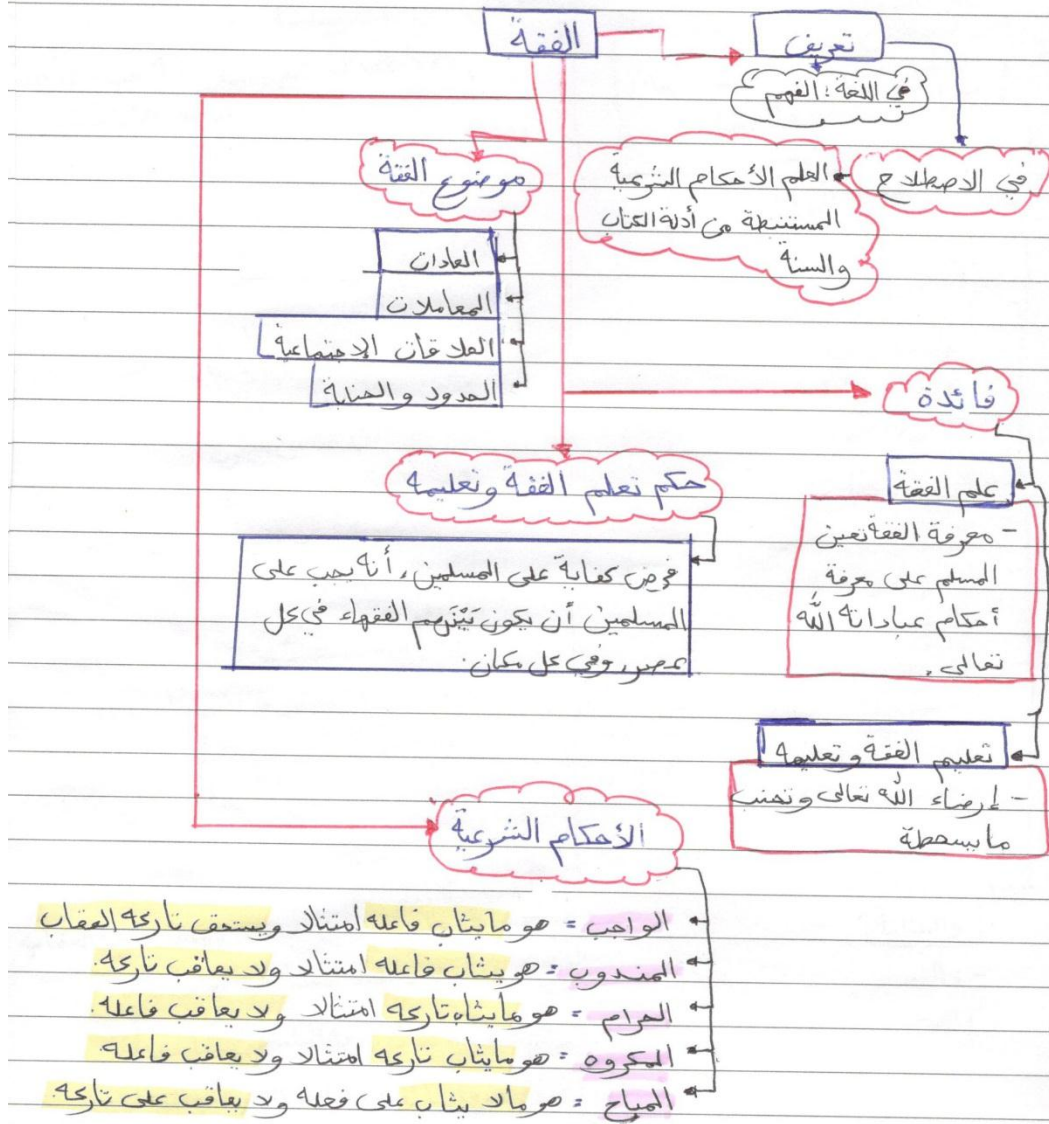 الفقة
تعريف
في اللغة: الفهم
في الاصطلاح
العلم الأحكام الشرعية
المستنبطة من أدلة الكتاب
والسنة
موضوع الفقة
العادات
المعاملات
العلاقات الاجتماعية
الحدود والجناية
فائدة
علم الفقة
- معرفة الفقة تعين
المسلم على معرفة
أحكام عباداتة الله
تعالى.
تعليم الفقة وتعليمة
- إرضاء الله تعالى وتجنب
ما يسخطة
حكم تعلم الفقة وتعليمة
فرض كفاية على المسلمين، أنة يجب على
المسلمين أن يكون بَيْنَهم الفقهاء في كل
عصر، وفي كل مكان.
الأحكام الشرعية
الواجب = هو ما يثاب فاعله امتثالا ويستحق تاركه العقاب
المندوب = هو يثاب فاعله امتثالا ولا يعاقب تاركه.
الحرام = هو ما يثاب تاركه امتثالا ولا يعاقب فاعله.
المكروه = هو ما يثاب تاركه امتثالا ولا يعاقب فاعله
المباح = هو مالا يثاب على فعله ولا يعاقب على تاركه.